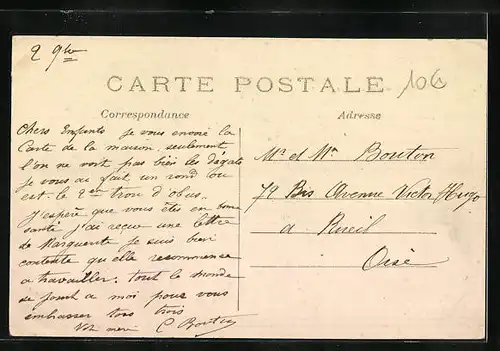 2 9bre
106
CARTE POSTALE
Correspondance
Adresse
Chers Enfants je vous envoie la
Carte de la maison, seulement
l'on ne voit pas bien les dégats
je vous ai fait un rond ou
est le 2em trou d'obus.
J'espère que vous êtes en bonne
santé j'ai reçue une lettre
de Marguerite je suis bien
contente qu'elle recommence
a travailler. tout le monde
se joint a moi pour vous
embrasser tous trois
Vot mère C Bouton
Mr et Mm Bouton
72 Bis Avenue Victor Hugo
a Rueil
Oise